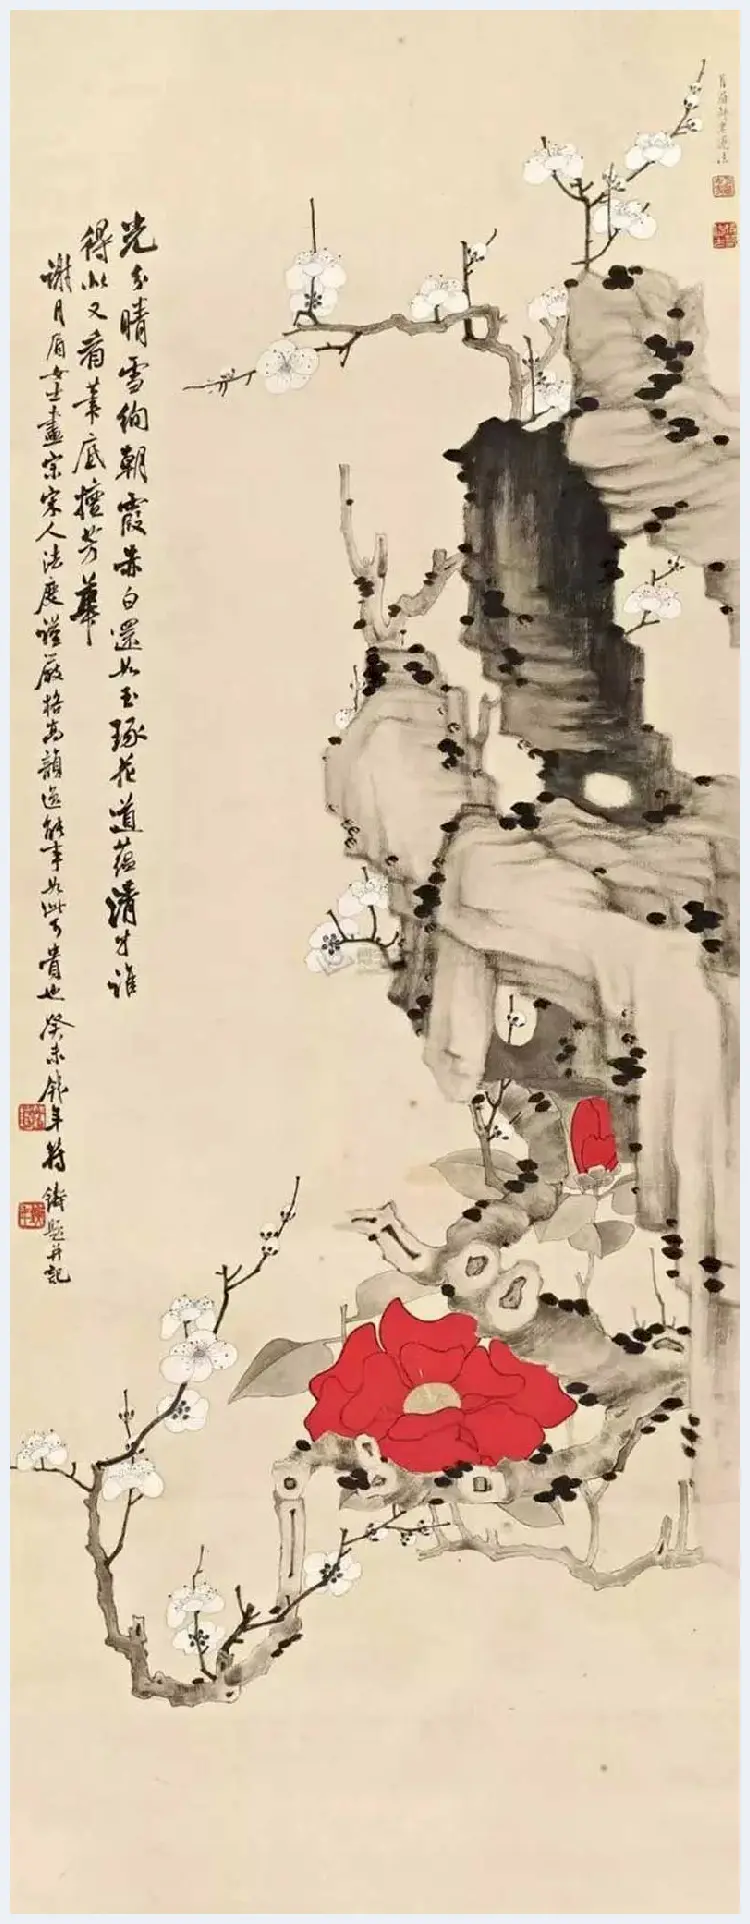 月眉謝
光分晴雪絢朝霞赤白還如玉琢花道藴清才誰
得似又看筆底擅芳華
謝月眉女士畫宗宋人法度謹嚴格高韻逸能事如此可貴也癸未殘年符鑄題并記